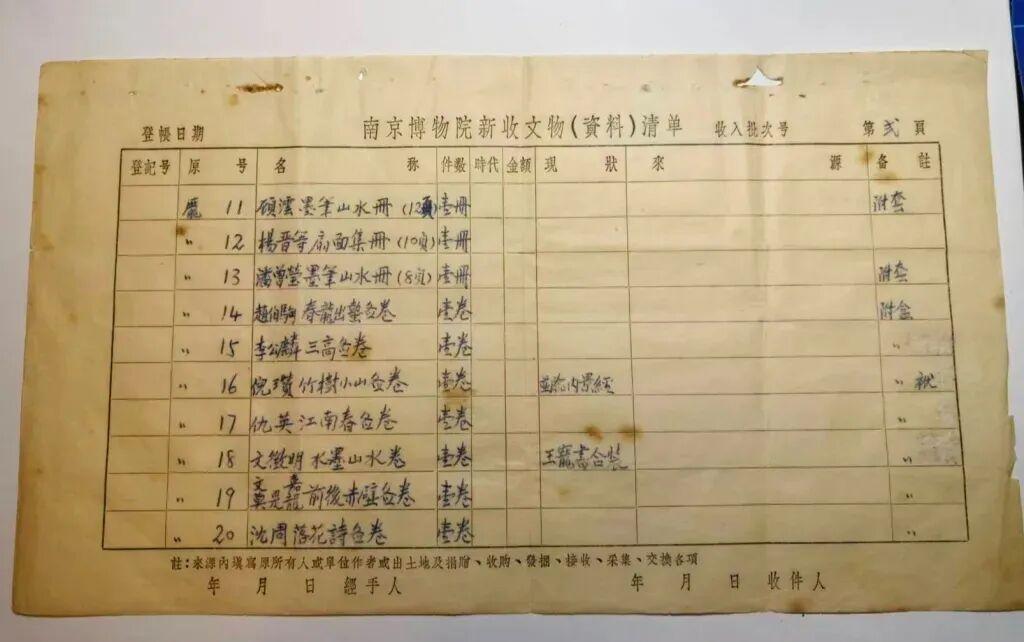 登帳日期 南京博物院新收文物(資料)清单 收入批次号 第 弍 頁
登記号 原 号 名 称 件数 時代 金額 現 狀 來 源 备 註
龐 11 顾澐墨笔山水冊(12頁) 壹冊 附套
〃 12 楊晋等扇面集冊(10頁) 壹冊
〃 13 潘曾瑩墨笔山水冊(8頁) 壹冊 附套
〃 14 趙伯驹 春龍出蟄啚卷 壹卷 附盒
〃 15 李公麟 三高啚卷 壹卷 〃
〃 16 倪瓚 竹樹小山啚卷 壹卷 内景經 〃 袱
〃 17 仇英 江南春啚卷 壹卷 〃
〃 18 文徵明 水墨山水卷 壹卷 王寵書合裝 〃
〃 19 文嘉 莫是龍 前後赤壁啚卷 壹卷 〃
〃 20 沈周 落花詩啚卷 壹卷 〃
註:來源內填寫原所有人或單位作者或出土地及捐贈、收购、發掘、接收、采集、交換各項
年 月 日 經手人 年 月 日 收件人